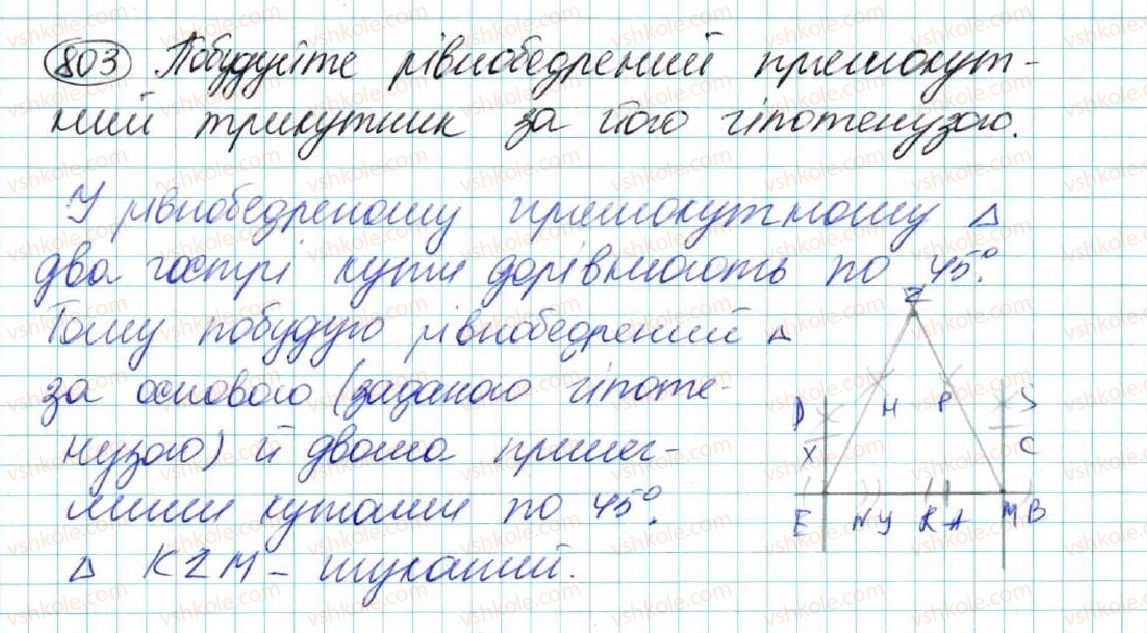 803 Побудуйте рівнобедрений прямокут-
ний трикутник за його гіпотенузою.
У рівнобедреному прямокутному △
два гострі кути дорівнюють по 45°.
Тому побудую рівнобедрений △
за основою (заданою гіпоте-
нузою) й двома прилег-
лими кутами по 45°.
△ KZM – шуканий.
Z
D H P S
X C
E N Y K A M B